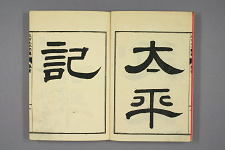 太平
記